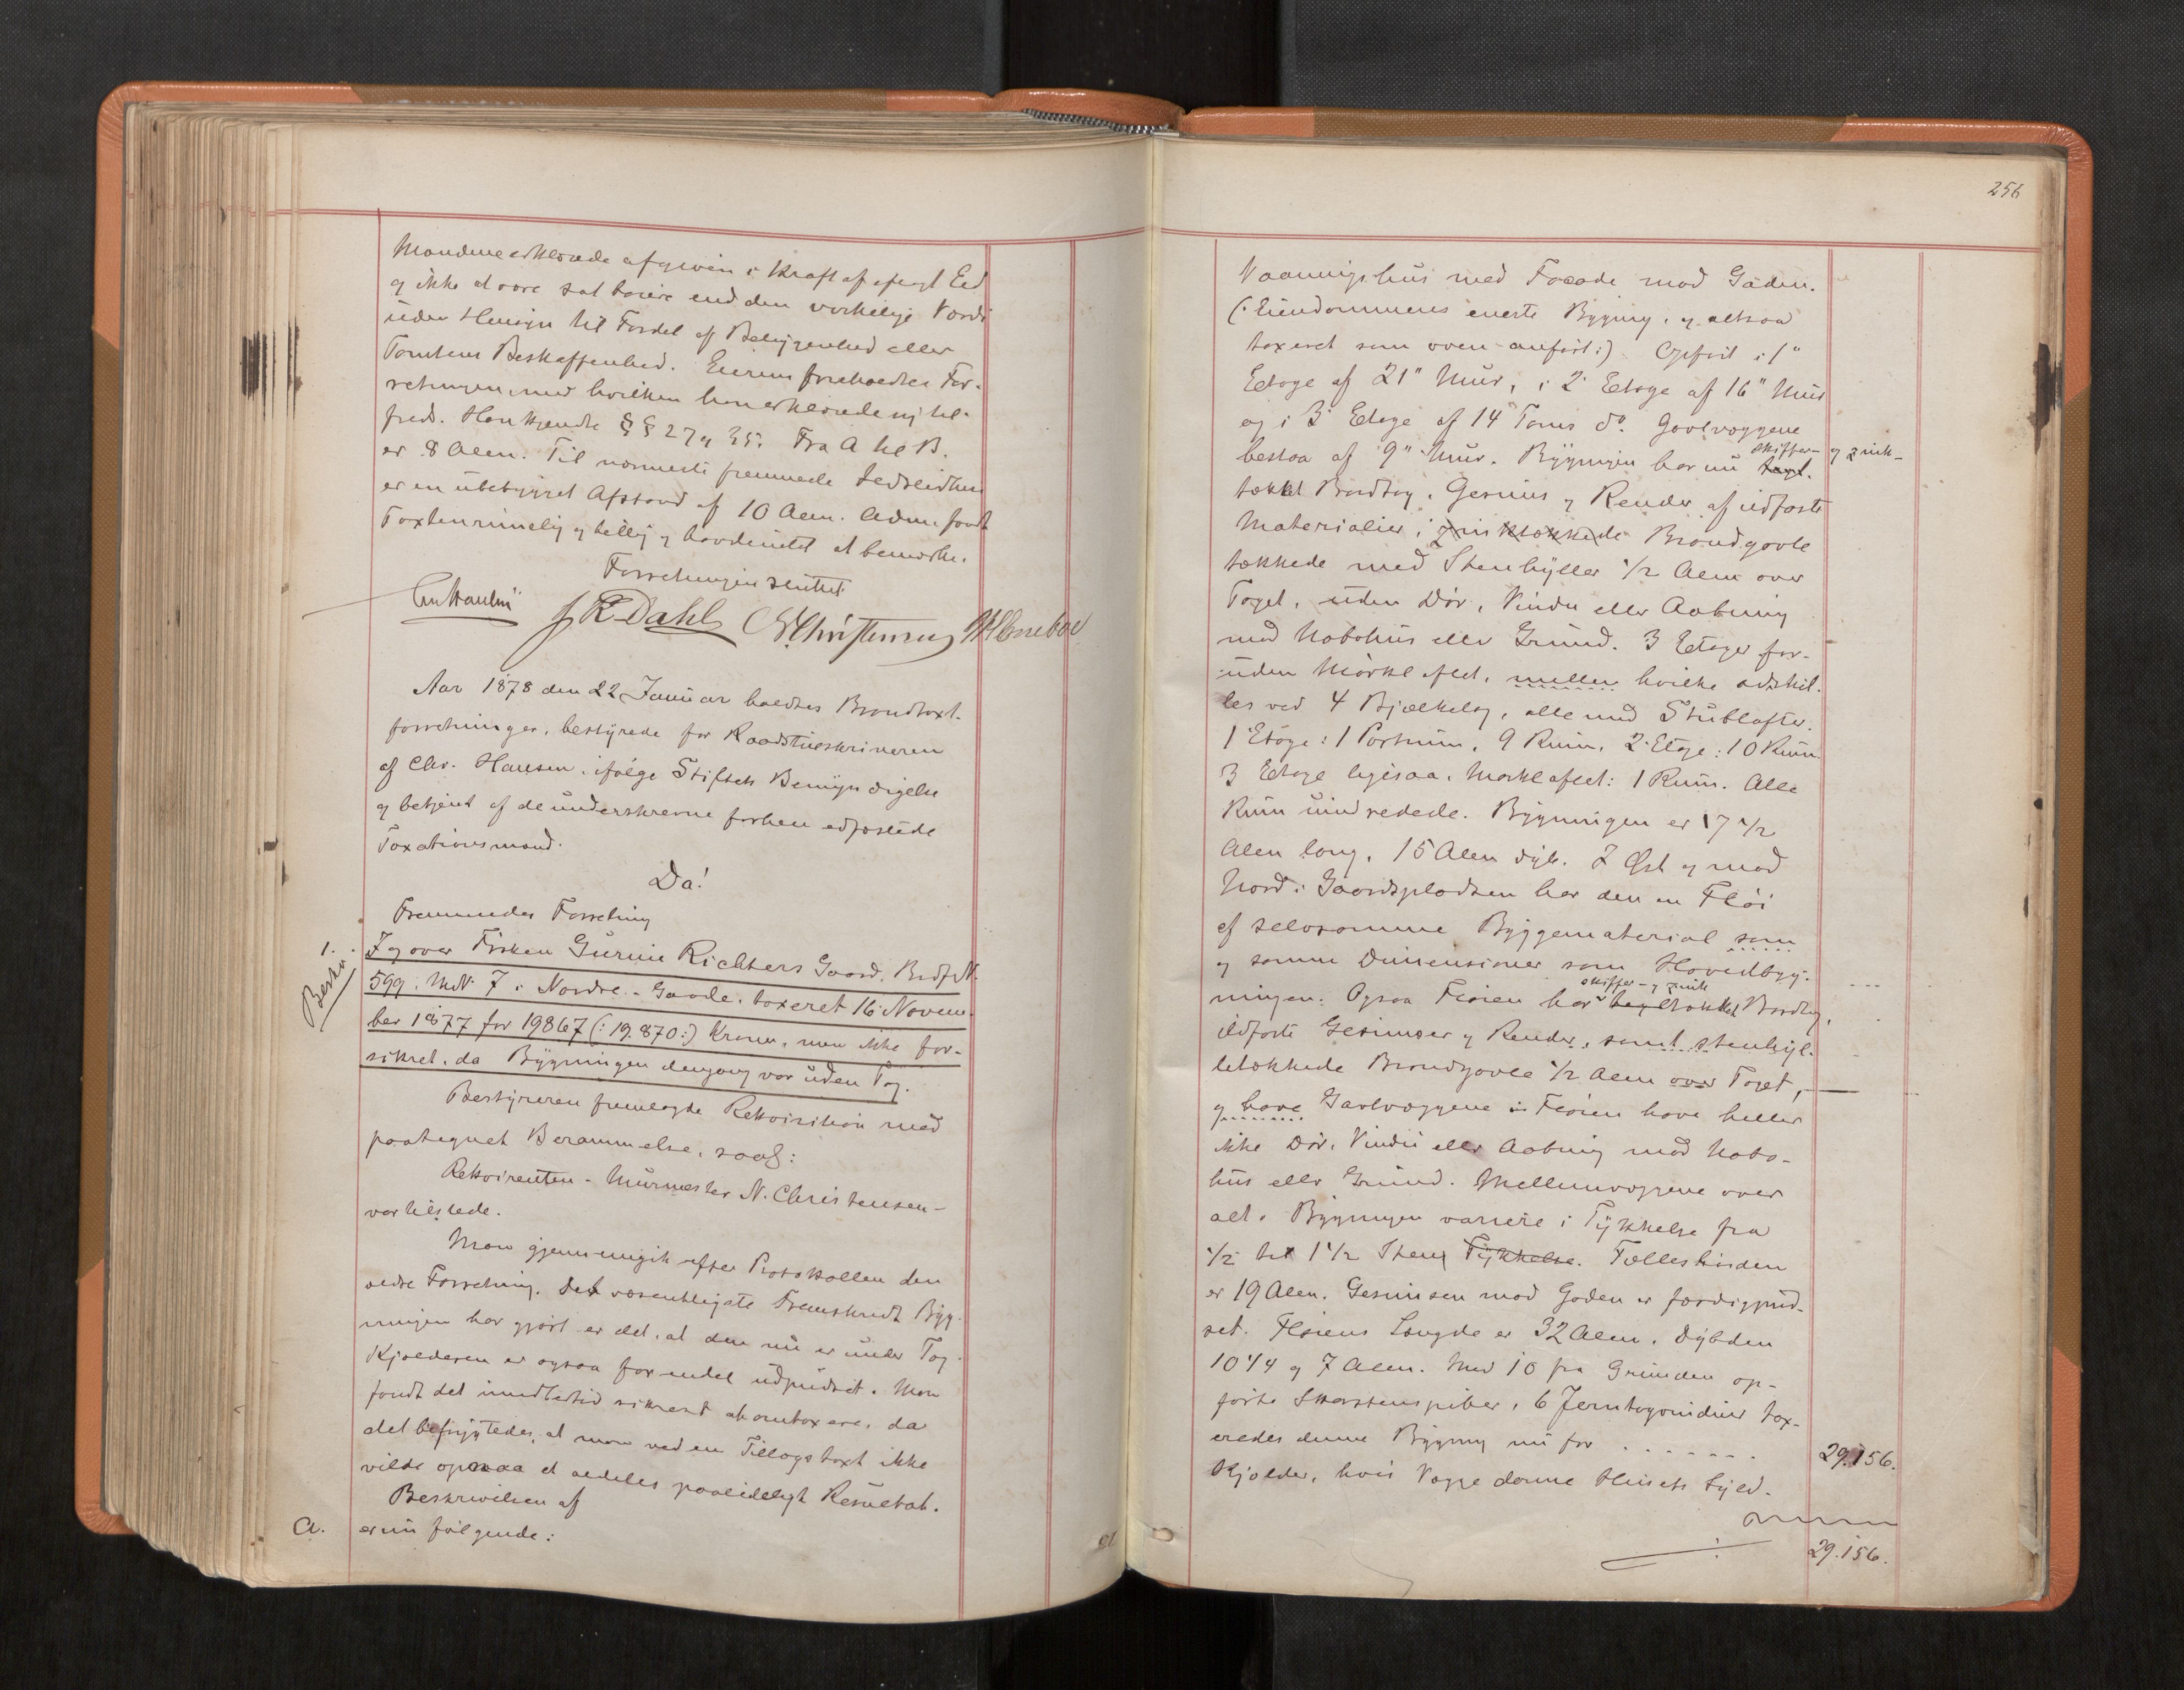 Mændene erklærede afgiven i Kraft af aflagt Eed
og ikke at være sat høiere end den virkelige Værdi
uden Hensyn til Fordel af Beliggenhed eller
Tomtens Beskaffenhed. Eieren foreholdtes For-
retningen, med hvilken han erklærede sig til-
freds. Han kjendte §§ 27 og 35. Fra A til B.
er 8 Alen. Til nærmeste fremmede Ildstedhus
er en ubebygget Afstand af 10 Alen. Adm. fandt
Taxten rimelig og billig og havde intet at bemærke.
Forretningen sluttet
Chr Hansen
J R Dahl N. Christensen
Aar 1878 den 22 Januar holdtes Brandtaxt-
forretninger, bestyrede for Raadstueskriveren
af Chr. Hansen, ifølge Stiftets Bemyndigelse
og betjent af de underskrevne forhen edfæstede
Taxationsmænd.
Da!
Fremmedes Forretning
1. I og over Frøken Gurine Richters Gaard, Brdf N.
Beskr.
599. M.N. 7 i Nordre-Gaade, taxeret 16 Novem-
ber 1877 for 19867 (: 19.870:) Kroner, men ikke for-
sikret, da Bygningen dengang var uden Tag.
Bestyreren fremlagte Rekvisition med
paategnet Berammelse, saal:
Rekvirenten - Murmester N. Christensen -
var tilstede.
Man gjennemgik efter Protokollen den
ældre Forretning. Det væsentligste Fremskridt Byg-
ningen har gjort er det, at den nu er under Tag.
Kjælderen er ogsaa for endel udpudset. Man
fandt det imidlertid sikrest at omtaxere, da
det befrygtedes, at man ved en Tillægstaxt ikke
vilde opnaa et aldeles paalideligt Resultat.
Beskrivelsen af
A. er nu følgende:
256
Vaaningshus med Facade mod Gaden.
(: Eiendommens eneste Bygning, og altsaa
taxeret som oven anført :) Opført i 1ᵉ
Etage af 21" Muur, i 2ᵉ Etage af 16" Muur
og i 3ᵉ Etage af 14 Toms dº. Gavlvæggene
skiffer- og zink-
bestaa af 9" Muur. Bygningen har nu tægl.
tækket Bordtag, Gesims og Render af ildfaste
Materialier, zinktækkede Brandgavle
tækkede med Stenhyller 1/2 Alen over
Taget, uden Dør, Vindu eller Aabning
mod Nabohus eller Grund. 3 Etager for-
uden Mørkloftet, mellem hvilke adskil-
les ved 4 Bjælkelag, alle med Stubloфter.
1 Etage: 1 Portrum, 9 Rum, 2 Etage: 10 Rum
3 Etage ligesaa. Mørkloftet: 1 Rum. Alle
Rum uindredede. Bygningen er 17 1/2
Alen lang, 15 Alen dyb. I Øst og mod
Nord i Gaardspladsen har den en Fløi
af selvsamme Byggematerial som
og samme Dimensioner som Hovedbyg-
skiffer- og zink
ningen. Ogsaa Fløien har tægltækket Bordtag,
ildfaste Gesimser og Render, samt stenhyl-
letækkede Brandgavle 1/2 Alen over Taget,
og have Gavlvæggene i Fløien have heller
ikke Dør, Vindu eller Aabning mod Nabo-
hus eller Grund. Mellemvæggene over
alt i Bygningen variere i Tykkelse fra
1/2 til 1 1/2 Stens Tykkelse. Fælleshøiden
er 19 Alen. Gesimsen mod Gaden er færdigpud-
set. Fløiens Længde er 32 Alen, Dybden
10 1/4 og 7 Alen. Med 10 fra Grunden op-
førte Skorstenspiber, 6 Jerntagvinduer tax-
eredes denne Bygning nu for . . . . . . . 29.156.
Kjælder, hvis Vægge danne Husets Fjeld-
29.156.